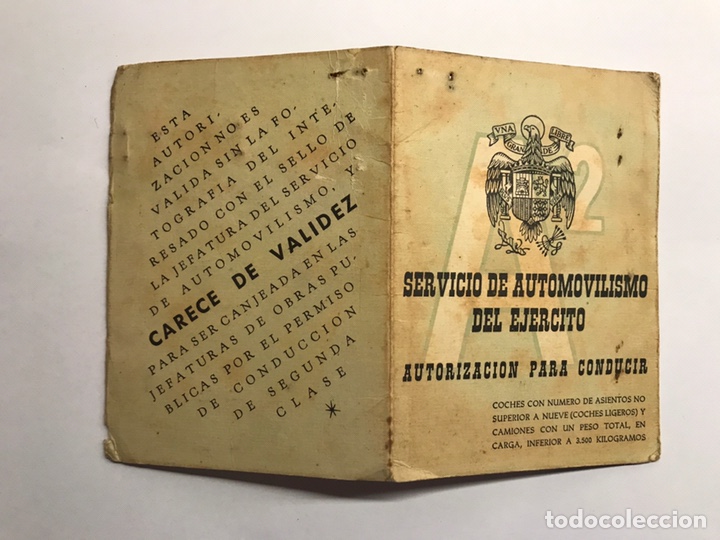 ESTA
AUTORI-
ZACION NO ES
VALIDA SIN LA FO-
TOGRAFIA DEL INTE-
RESADO CON EL SELLO DE
LA JEFATURA DEL SERVICIO
DE AUTOMOVILISMO, Y
CARECE DE VALIDEZ
PARA SER CANJEADA EN LAS
JEFATURAS DE OBRAS PU-
BLICAS POR EL PERMISO
DE CONDUCCION
DE SEGUNDA
CLASE
*
A2
VNA GRANDE LIBRE
SERVICIO DE AUTOMOVILISMO
DEL EJERCITO
AUTORIZACION PARA CONDUCIR
COCHES CON NUMERO DE ASIENTOS NO
SUPERIOR A NUEVE (COCHES LIGEROS) Y
CAMIONES CON UN PESO TOTAL, EN
CARGA, INFERIOR A 3.500 KILOGRAMOS
todocoleccion.net